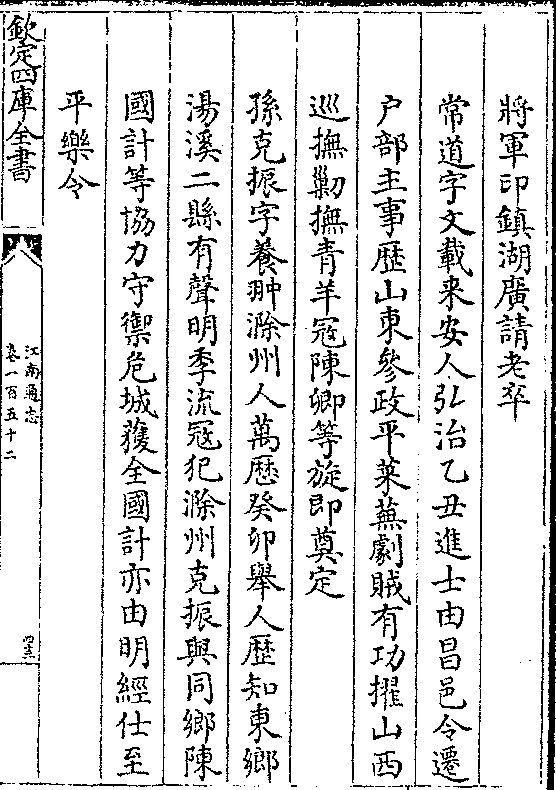 將軍印鎮湖廣請老卒
常道字文載来安人弘治乙丑進士由昌邑令遷
户部主事歴山東參政平萊蕪劇賊有功擢山西
巡撫勦撫青羊冦陳卿等旋即奠定
孫克振字養翀滁州人萬歴癸卯舉人歴知東鄉
湯溪二縣有聲明季流冦犯滁州克振與同鄉陳
國計等協力守禦危城獲全國計亦由明經仕至
平樂令
欽定四庫全書
江南通志
卷一百五十二
四三